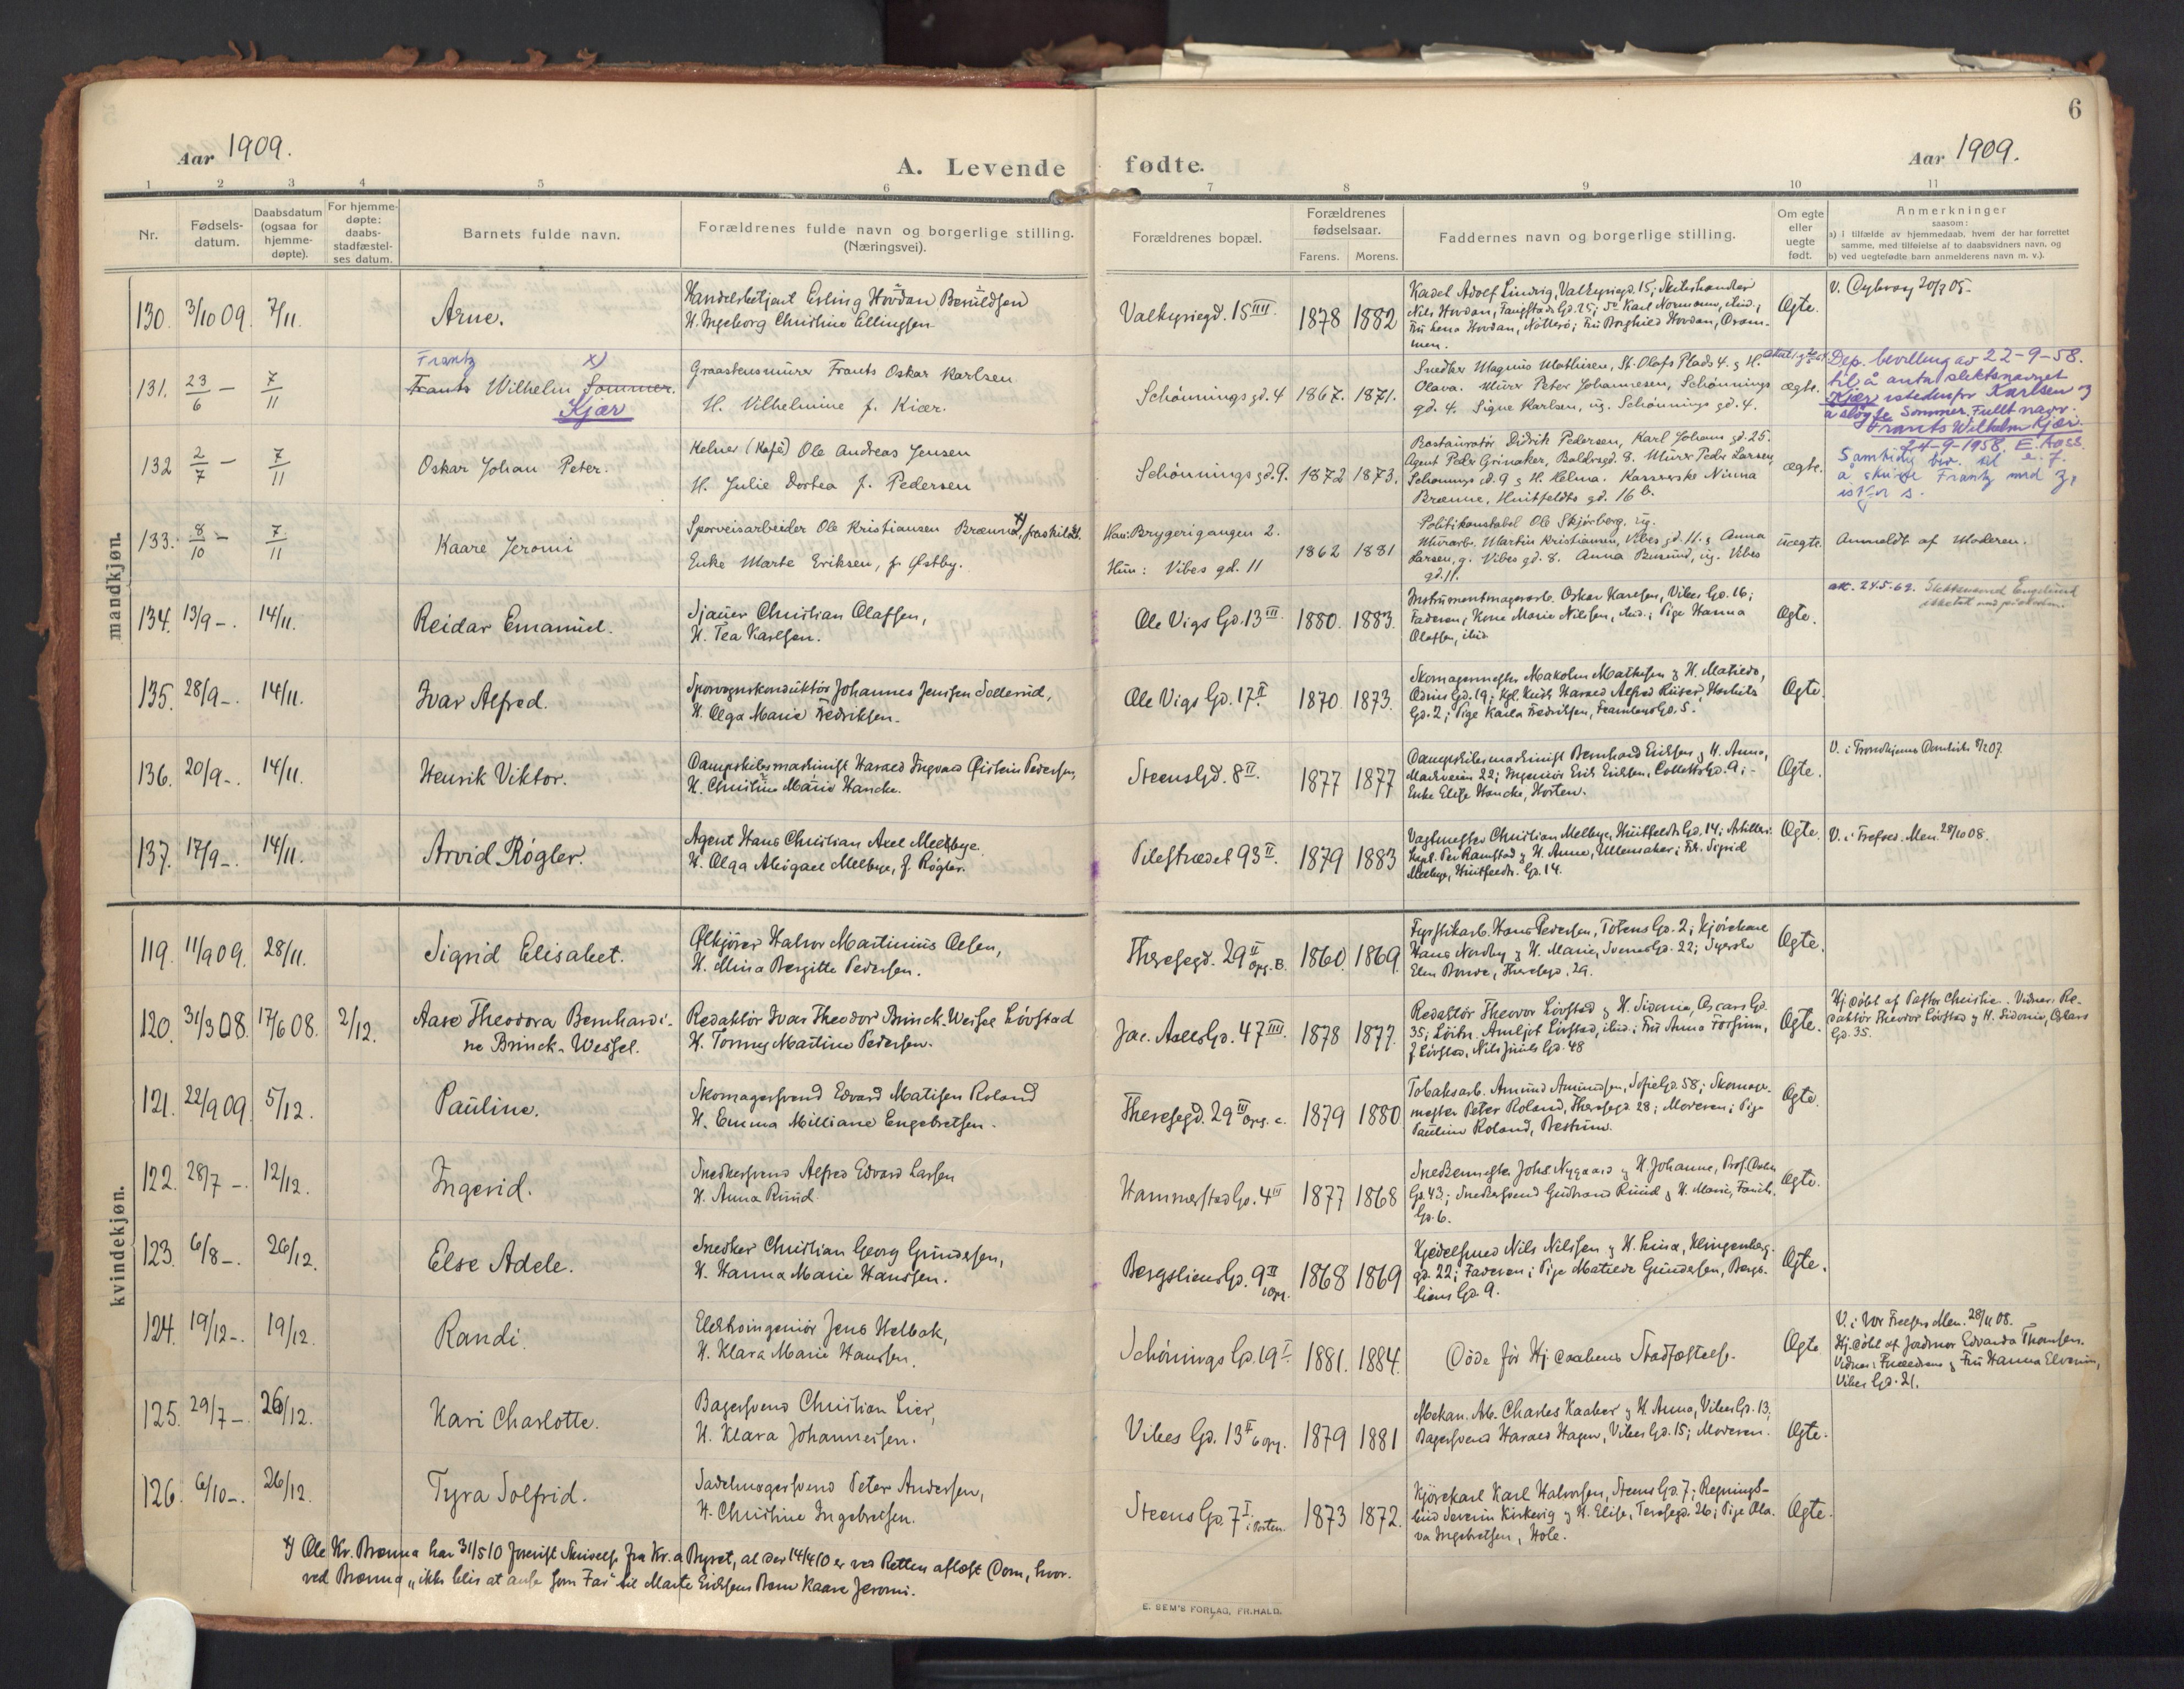 6
Aar 1909.
A. Levende fødte.
Aar 1909.
1 2 3 4 5 6 7 8 9 10 11
Nr.
Fødsels-
datum.
Daabsdatum
(ogsaa for
hjemme-
døpte).
For hjemme-
døpte:
daabs-
stadfæstel-
ses datum.
Barnets fulde navn.
Forældrenes fulde navn og borgerlige stilling.
(Næringsvei).
Forældrenes bopæl.
Forældrenes
fødselsaar.
Farens. Morens.
Faddernes navn og borgerlige stilling.
Om egte
eller
uegte
født.
Anmerkninger
saasom:
a) i tilfælde av hjemmedaab, hvem der har forrettet
samme, med tilføielse af to daabsvidners navn, og
b) ved uegtefødte barn anmelderens navn m. v.).
mandkjøn.
130. 3/10 09. 7/11.
Arne.
Handelsbetjent Erling Hovdan Beruldsen
H. Ingeborg Christine Ellingsen
Valkyriegd. 15 IIII.
1878 1882
Nils Hovdan, Tangstads Gd. 25; Karl Normann, ibid.;
Fru Lena Hovdan, Nötterö; Fru Borghild Hovdan, Dram-
men.
Ægte.
131. 23/6 — 7/11
Frantz x)
Frants Wilhelm Sommer.
Kjær
Graastensmürer Frants Oskar Karlsen
H. Vilhelmine f. Kiær.
Schønnings gd. 4 1867. 1871.
Snedker Magnus Mathisen, St. Olafs Plads 4. & H.
Olava. Mürer Peter Johannesen, Schønnings
gd. 4. Signe Karlsen, ug. Schønnings gd. 4.
ægte.
Dep. bevilling av 22-9-58.
til å anta slektsnavnet
Kjær istedenfor Karlsen og
å sløyfe Sommer. Fullt navn:
Frants Wilhelm Kjær.
24-9-1958. E. Aass.
Samtidig bev. til
å skrive Frantz med z,
istf. s.
132 2/7 — 7/11
Oskar Johan Peter.
Kelner (Kafé) Ole Andreas Jensen
H. Julie Dortea f. Pedersen
Schønnings gd. 9. 1872 1873.
Restauratør Didrik Pedersen, Karl Johans gd. 25.
Agent Peder Grinaker, Baldersgd. 8. Mürer Peder Larsen,
Schønnings gd. 9 & H. Helma. Kasserske Ninna
Brænne, Huitfeldts gd. 16 b.
ægte.
133. 8/10 — 7/11
Kaare Jeromi
Sporveisarbeider Ole Kristiansen Brænna, x) fraskildt.
Enke Marte Eriksen, f. Østby.
Han: Brygerigangen 2.
Hun: Vibes gd. 11
1862 1881
Politikonstabel Ole Skjørberg, ug.
Mürarb. Martin Kristiansen, Vibes gd. 11. & Anna
Larsen, g. Vibes gd. 8. Anna Busund, ug. Vibes
gd. 11.
uægte.
Anmeldt af Moderen.
134. 13/9 —. 14/11.
Reidar Emanuel.
Sjauer Christian Olafsen,
H. Tea Karlsen.
Ole Vigs Gd. 13 III 1880. 1883.
Instrumentmagerarb. Oskar Karlsen, Vibes Gd. 16;
Faderen; Kone Marie Nilssen, ibid.; Pige Hanna
Olafsen, ibid.
Ægte.
att. 24.5.62.
135. 28/9 —. 14/11.
Ivar Alfred.
Sporvognskonduktör Johannes Jenssen Sollerud,
H. Olga Marie Fredriksen.
Ole Vigs Gd. 17 II. 1870. 1873.
Skomagermester Makolm Mathesen & H. Matilde,
Gd. 2; Pige Karla Fredriksen, Framnes Gd. 5.
Ægte.
136. 20/9 —. 14/11.
Henrik Viktor.
Dampskibsmaskinist Harald Ingvald Øistein Pedersen,
H. Christine Marie Hancke.
Steens Gd. 8 II. 1877 1877
Dampskibsmaskinist Bernhard Eriksen & H. Anna,
Markveien 22; Ingeniör Erik Eriksen, Colletts Gd. 9;
Enke Elise Hancke, Horten.
Ægte.
V. i Trondhjems Domkirke 07
137. 17/9 —. 14/11.
Arvid Røgler.
Agent Hans Christian Axel Melbye
H. Olga Abigael Melbye, f. Røgler.
Pilestrædet 93 II. 1879 1883
Vagtmester Christian Melbye, Huitfeldts Gd. 14; Artilleri
Kapt. Per Ramstad & H. Anna, Ullensaker; Frk. Sigrid
Melbye, Huitfeldts Gd. 14.
Ægte.
V. i Frelsers Men. 28/10 08.
kvindekjøn.
119. 11/9 09. 28/11.
Sigrid Elisabet.
Ølkjörer Halvor Martinius Olsen,
H. Mina Bergitte Pedersen.
Theresegd. 29 II Opg. B. 1860. 1869.
Fyrstikarb. Hans Pedersen, Totens Gd. 2; Kjørekarl
Hans Nordby & H. Marie, Gd. 22; Syerske
Theresegd. 29.
Ægte.
120. 31/3 08. 17/6 08. 2/12.
Aase Theodora Bernhardi-
ne Brinck-Wessel.
Redaktör Ivar Theodor Brinck-Wessel Lövstad
H. Tommy Martine Pedersen.
Jac. Aalls Gd. 47 IIII. 1878 1877.
Redaktör Theodor Lövstad & H. Sidonie, Oscars Gd.
35; Löitn. Arnljot Lövstad, ibid.; Fru Anna
f. Lövstad, Nils Juuls Gd. 48
Ægte.
Hj. døbt af Pastor Christie. Vidner: Re-
daktör Theodor Lövstad & H. Sidonie, Oskars
Gd. 35.
121. 22/9 09. 5/12.
Pauline.
Skomagersvend Edvard Matisen Roland
H. Emma Milliane Engebretsen.
Theresegd. 29 III Opg. c. 1879 1880
Tobaksarb. Amund Amundsen, Sofies Gd. 58; Skomager-
mester Peter Roland, Theresegd. 28; Moderen; Pige
Pauline Roland, Bestum.
Ægte.
122. 28/7 —. 12/12.
Ingerid.
Snedkersvend Alfred Edvard Larsen
H. Anna Ruud
Hammerstad Gd. 4 III 1877 1868
Snedkermester Johs. Nygaard & H. Johanne, Prof. Dahls
Gd. 43; Snedkersvend Gudbrand Ruud & H. Marie,
Gd. 6.
Ægte.
123. 6/8 —. 26/12.
Else Adele.
Snedker Christian Georg Gundersen,
H. Hanna Marie Hanssen.
Bergsliens Gd. 9 II 1868 1869
Kjedelsmed Nils Nilssen & H. Lina, Klingenberg-
gd. 22; Faderen; Pige Matilde Gundersen, Bergs-
liens Gd. 9.
Ægte.
124. 19/12 —. 19/12.
Randi.
Elektroingeniör Jens Helbak,
H. Klara Marie Hanssen.
Schønings Gd. 19 I. 1881. 1884.
Døde før Hj. daabens Stadfæstelse.
Ægte
V. i Vor Frelsers Men. 28/11 08.
Hj. døbt af Jordmor Edvarda Thomsen.
Vidner: Forældrene & Fru Hanna Elverum,
Vibes Gd. 21.
125. 29/7 —. 26/12.
Kari Charlotte.
Bagersvend Christian Lier,
H. Klara Johannessen.
Vibes Gd. 13 II 1879 1881
Mekan. Arb. Charles Kaaber & H. Anna, Vibes Gd. 13;
Bagersvend Harald Hagen, Vibes Gd. 15; Moderen.
Ægte.
126. 6/10 —. 26/12.
Tyra Solfrid.
Sadelmagersvend Peter Andersen,
H. Christine Ingebretsen.
Steens Gd. 7 I. i Porten. 1873 1872.
Kjörekarl Karl Halvorsen, Steens Gd. 7; Regnings-
bud Severin Kirkevig & H. Elise, Teresegd. 26; Pige Ola-
va Ingebretsen, Hole.
Ægte.
x) Ole Kr. Brænna har 31/5 10 forevist Skrivelse fra Kr.a Byret, at der 14/4 10 er ved Retten afsagt Dom, hvor-
ved Brænna „ikke blir at anse som Far" til Marte Eriksens Barn Kaare Jeromi.
E. SEM'S FORLAG, FR.HALD.